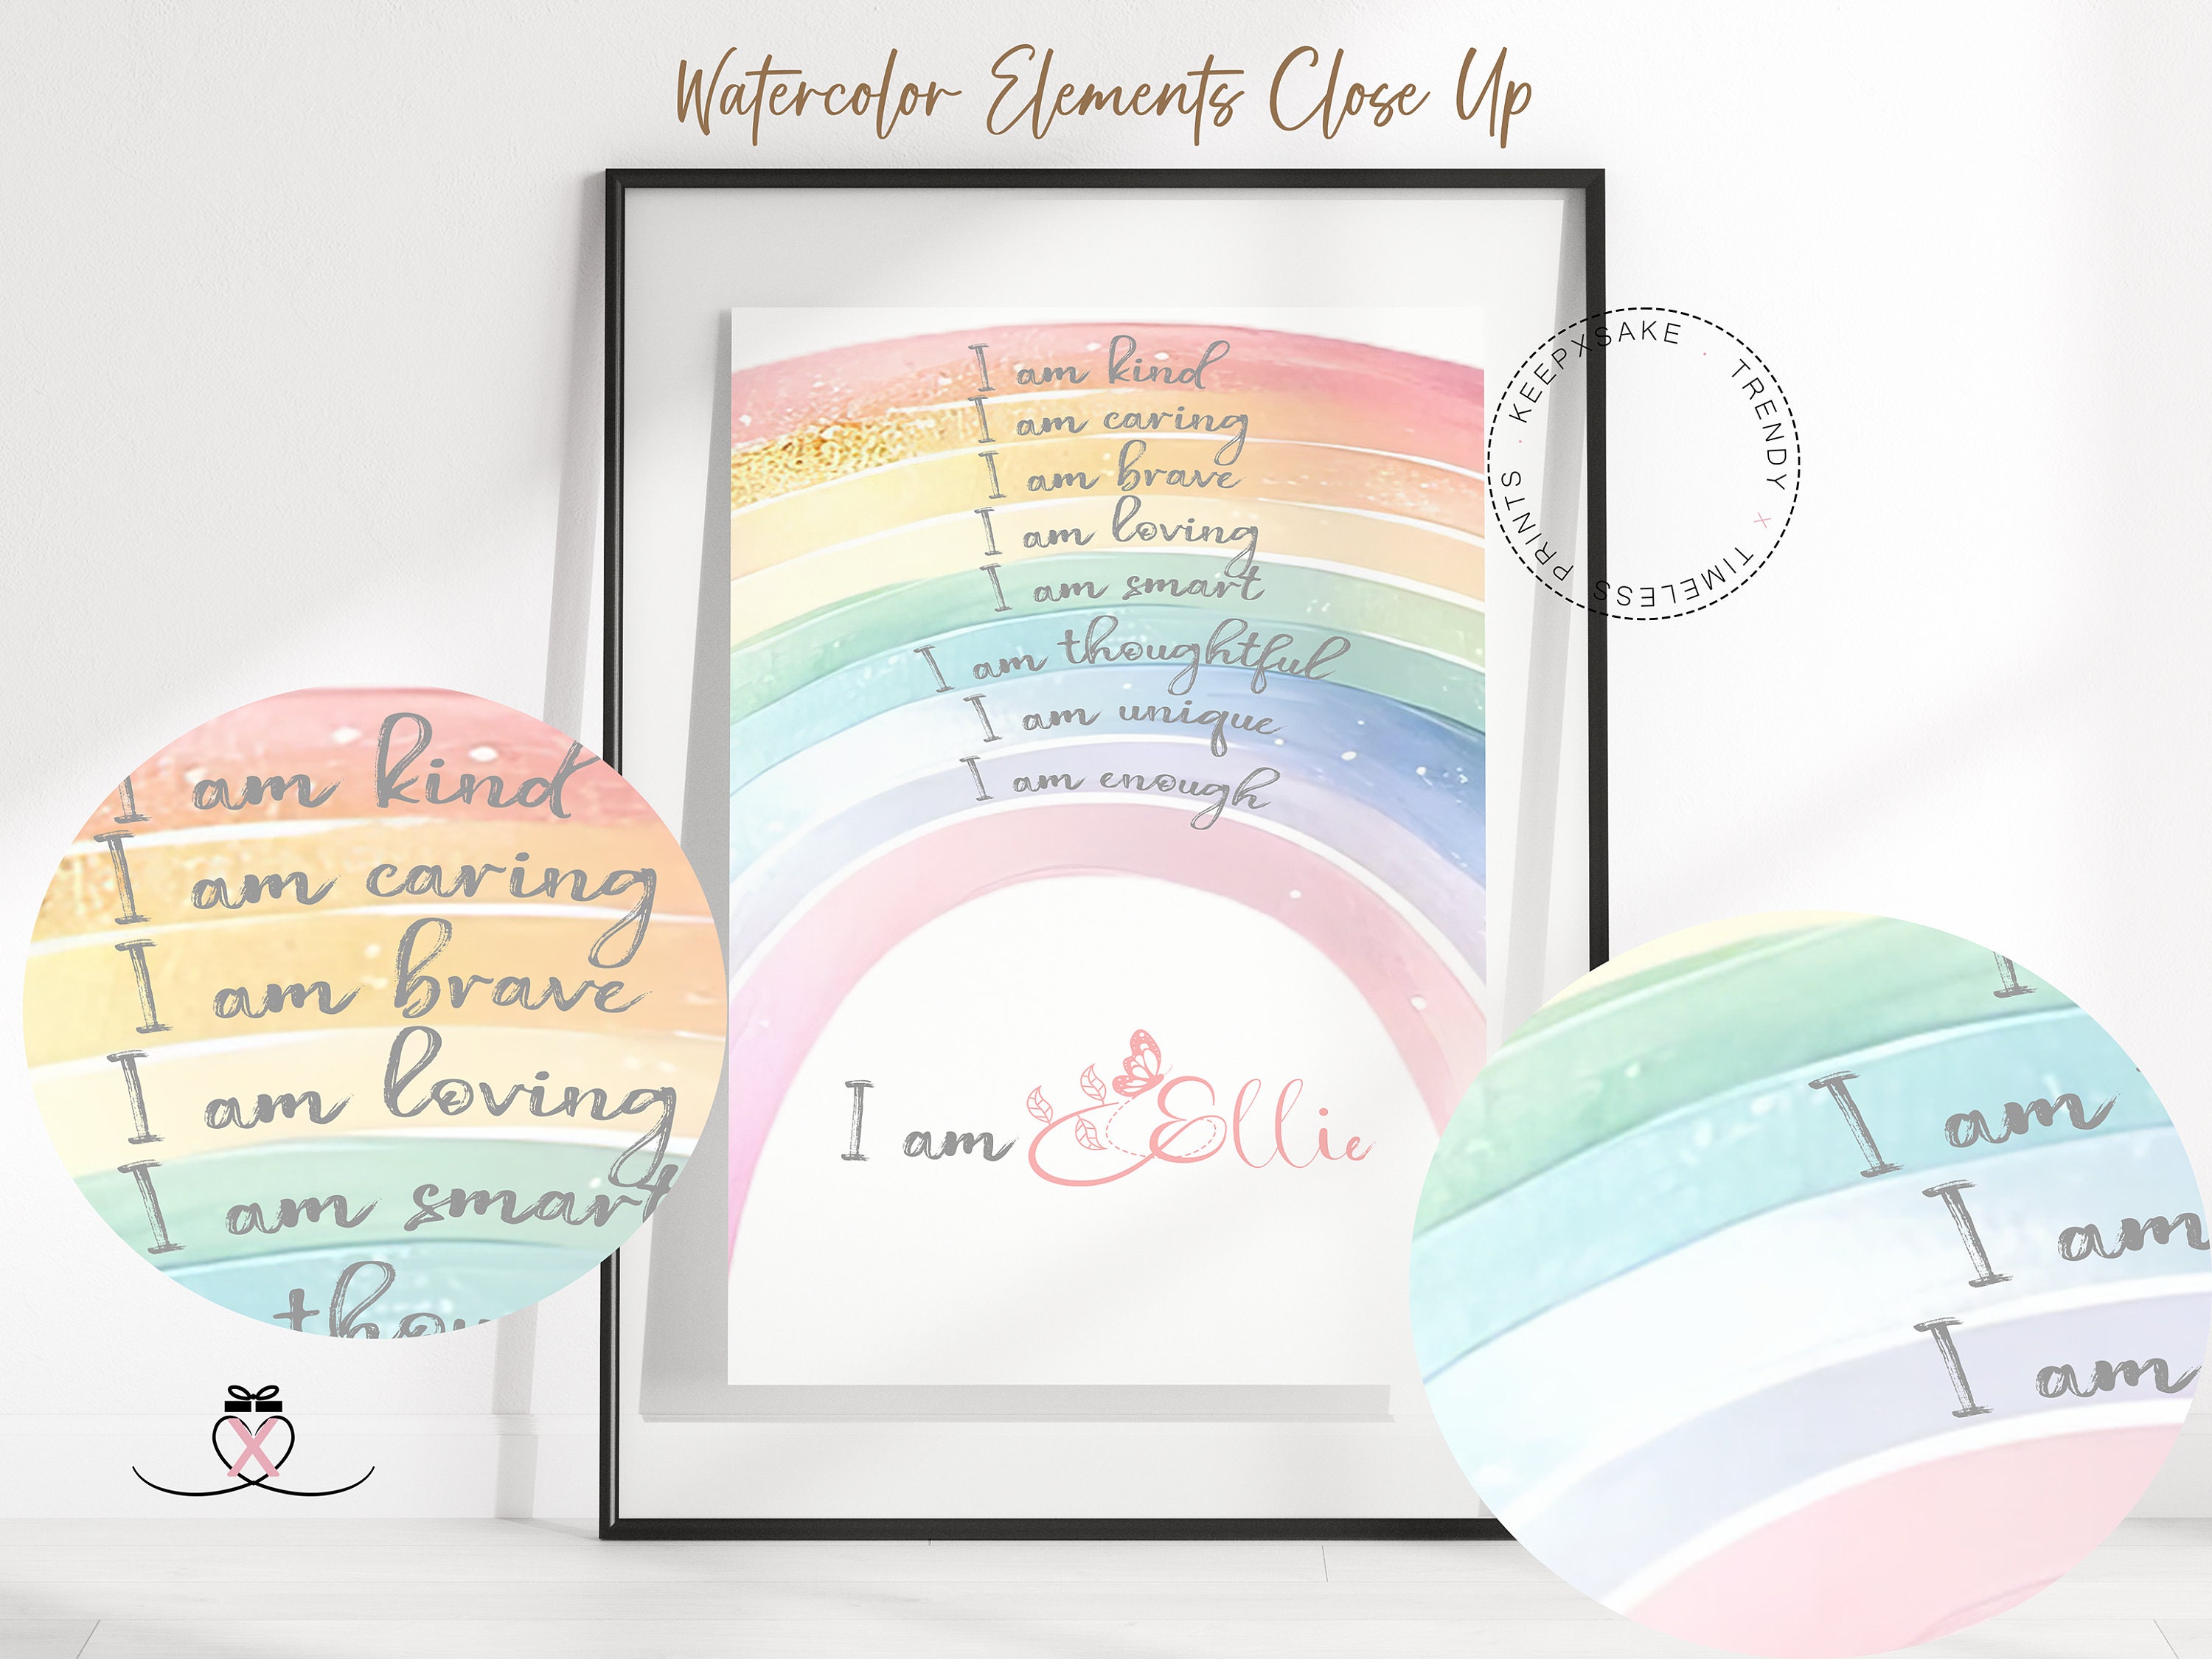 Watercolor Elements Close Up
I am kind
I am caring
I am brave
I am loving
I am smart
I am thoughtful
I am unique
I am enough
I am Ellie
KEEPXSAKE · TRENDY X TIMELESS PRINTS ·
I am kind
I am caring
I am brave
I am loving
I am smart
thou
I
I am
I am
I am
X